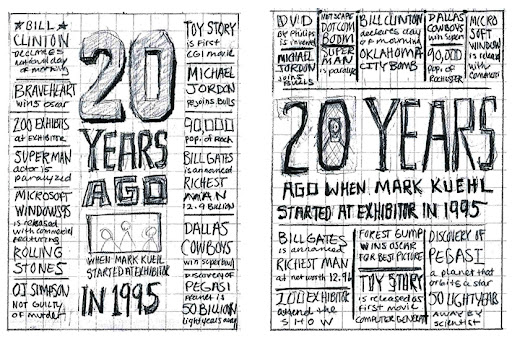 ★BILL★
CLINTON
DECLARES
national day
of mourning
BRAVEHEART
wins oscar
200 EXHIBITS
at EXHIBITOR
SUPERMAN
actor is
paralyzed
MICROSOFT
WINDOWS95
is released
with commercial
featuring
ROLLING
STONES
OJ SIMPSON
NOT GUILTY
of murder
20
YEARS
AGO
WHEN MARK KUEHL
STARTED AT EXHIBITOR
IN 1995
TOY STORY
is first
CGI movie
MICHAEL
JORDON
rejoins BULLS
90,000
pop. of Roch
BILL GATES
is announced
RICHEST
MAN
12.9 BILLION
DALLAS
COWBOYS
win superbowl
discovery of
PEGASI
planet is
50 BILLION
lightyears away
DVD
By Philips
is invented
MICHAEL
JORDON
joins
BULLS
NETSCAPE
DOTCOM
BOOM
SUPER
MAN
is paralyze
BILL CLINTON
declares day
of mourning
OKLAHOMA
CITY BOMB
DALLAS
COWBOYS
win super
90,000
pop. of
ROCHESTER
MICRO
SOFT
WINDOW
is released
with
20 YEARS
AGO WHEN MARK KUEHL
STARTED AT EXHIBITOR IN 1995
BILL GATES
is announced
RICHEST MAN
at net worth 12.9
200 EXHIBITOR
attend the
SHOW
FOREST GUMP
WINS OSCAR
FOR BEST PICTURE
TOY STORY
is released as
first movie
COMPUTER
DISCOVERY OF
PEGASI
a planet that
orbits a star
50 LIGHTYEARS
AWAY BY
scientist